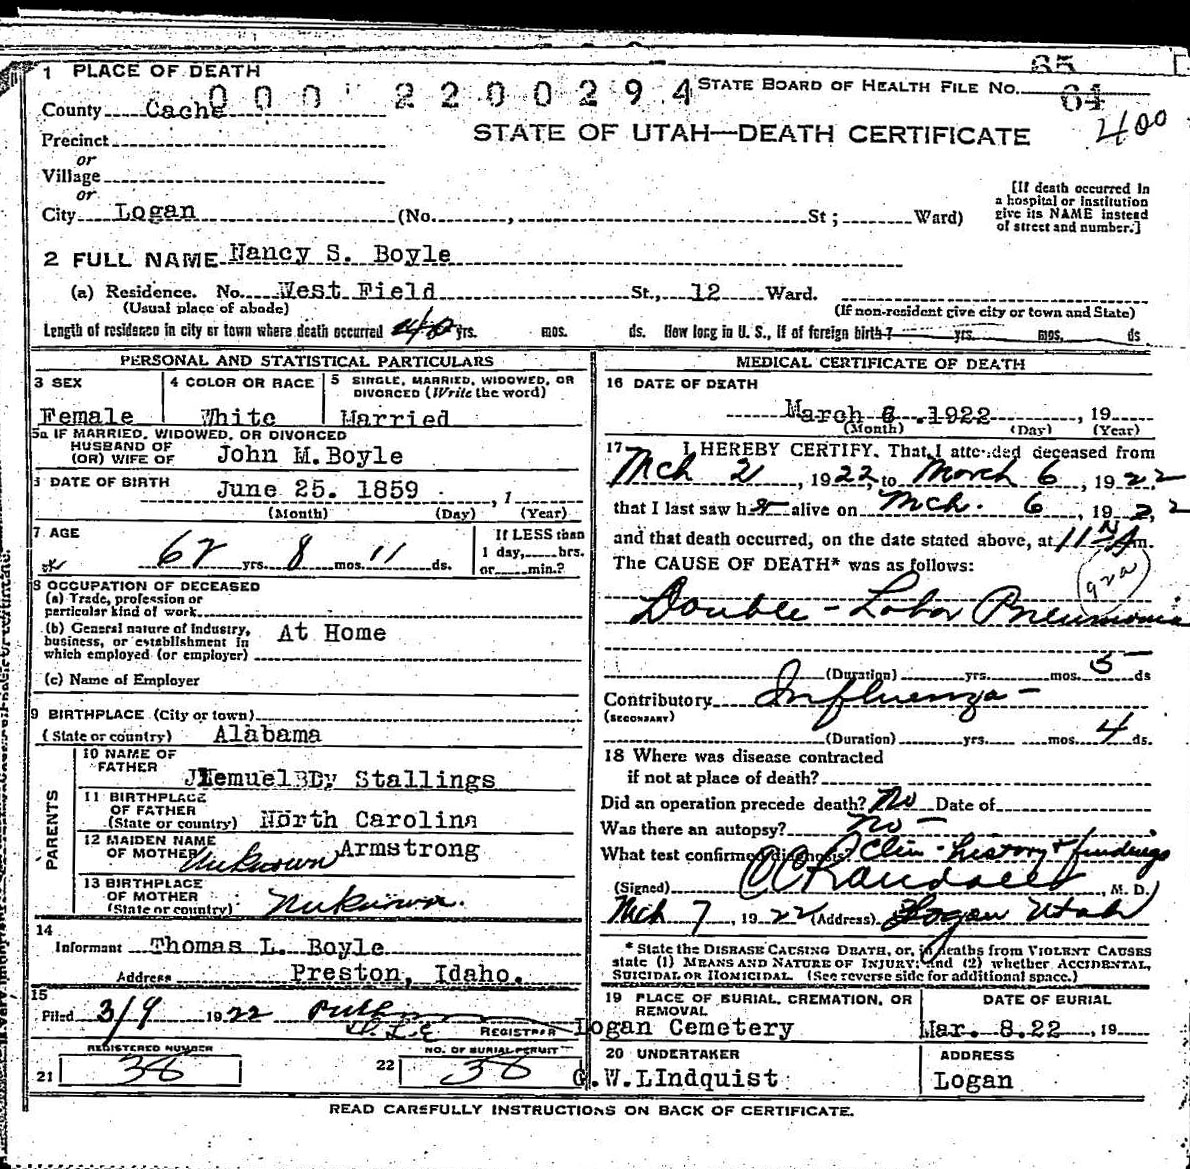 65
1 PLACE OF DEATH
000 2200294
STATE BOARD OF HEALTH FILE No. 64
County Cache
400
STATE OF UTAH—DEATH CERTIFICATE
Precinct
or
Village
or
City Logan (No. , St ; Ward)
[If death occurred in
a hospital or institution
give its NAME instead
of street and number.]
2 FULL NAME Nancy S. Boyle
(a) Residence. No. West Field St., 12 Ward.
(Usual place of abode) (If non-resident give city or town and State)
Length of residence in city or town where death occurred 40 yrs. mos. ds. How long in U. S., if of foreign birth? yrs. mos. ds
PERSONAL AND STATISTICAL PARTICULARS
3 SEX 4 COLOR OR RACE 5 SINGLE, MARRIED, WIDOWED, OR
DIVORCED (Write the word)
Female White Married
5a IF MARRIED, WIDOWED, OR DIVORCED
HUSBAND OF
(OR) WIFE OF John M.Boyle
DATE OF BIRTH June 25. 1859 , 1
(Month) (Day) (Year)
7 AGE If LESS than
1 day, hrs.
62 yrs. 8 mos. 11 ds. or min.?
8 OCCUPATION OF DECEASED
(a) Trade, profession or
particular kind of work
(b) General nature of industry,
business, or establishment in
which employed (or employer) At Home
(c) Name of Employer
9 BIRTHPLACE (City or town)
(State or country) Alabama
PARENTS
10 NAME OF
FATHER Stallings
11 BIRTHPLACE
OF FATHER
(State or country) North Carolina
12 MAIDEN NAME
OF MOTHER Unknown Armstrong
13 BIRTHPLACE
OF MOTHER
(State or country) Unknown.
14
Informant Thomas L. Boyle
Address Preston, Idaho.
15
Filed 3/9 1922
REGISTRAR
REGISTERED NUMBER NO. OF BURIAL PERMIT
21 38 22 38
MEDICAL CERTIFICATE OF DEATH
16 DATE OF DEATH
March 6 .1922 , 19
(Month) (Day) (Year)
17 I HEREBY CERTIFY, That I attended deceased from
Mch 2 , 1922, to March 6 , 1922
that I last saw h alive on Mch. 6 , 1922
and that death occurred, on the date stated above, at 11 m.
The CAUSE OF DEATH* was as follows:
Double - Lobar Pneumonia
(Duration) yrs. mos. 5 ds
Contributory Influenza -
(SECONDARY)
(Duration) yrs. mos. 4 ds.
18 Where was disease contracted
if not at place of death?
Did an operation precede death? No Date of
Was there an autopsy? No -
What test confirmed diagnosis? Clin - history & findings
(Signed) , M. D.
Mch 7 , 1922 (Address) Logan Utah
* State the DISEASE CAUSING DEATH, or, in deaths from VIOLENT CAUSES
state (1) MEANS AND NATURE OF INJURY; and (2) whether ACCIDENTAL,
SUICIDAL OR HOMICIDAL. (See reverse side for additional space.)
19 PLACE OF BURIAL, CREMATION, OR
REMOVAL DATE OF BURIAL
Logan Cemetery Mar. 8.22 , 19
20 UNDERTAKER ADDRESS
G.W.LIndquist Logan
READ CAREFULLY INSTRUCTIONS ON BACK OF CERTIFICATE.